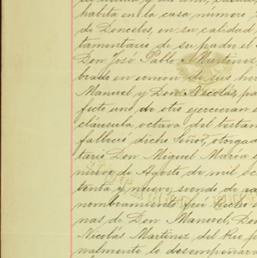 habita en la casa, número
de Donceles, en su calidad
tamentario de su padre el
Don José Pablo Martinez
brado en union de sus her
Manuel, y Don Nicolas, pa
fecto uno de otro ejercieran el
cláusula octava del testam
falleció dicho Señor, otorgad
tario Don Miguel Maria
nueve de Agosto de mil oc
tenta y nueve, siendo de
nombramiento fue hecho
nas de Don Manuel, Don
Nicolás Martinez del Rio, p
nalmente lo desempeñara